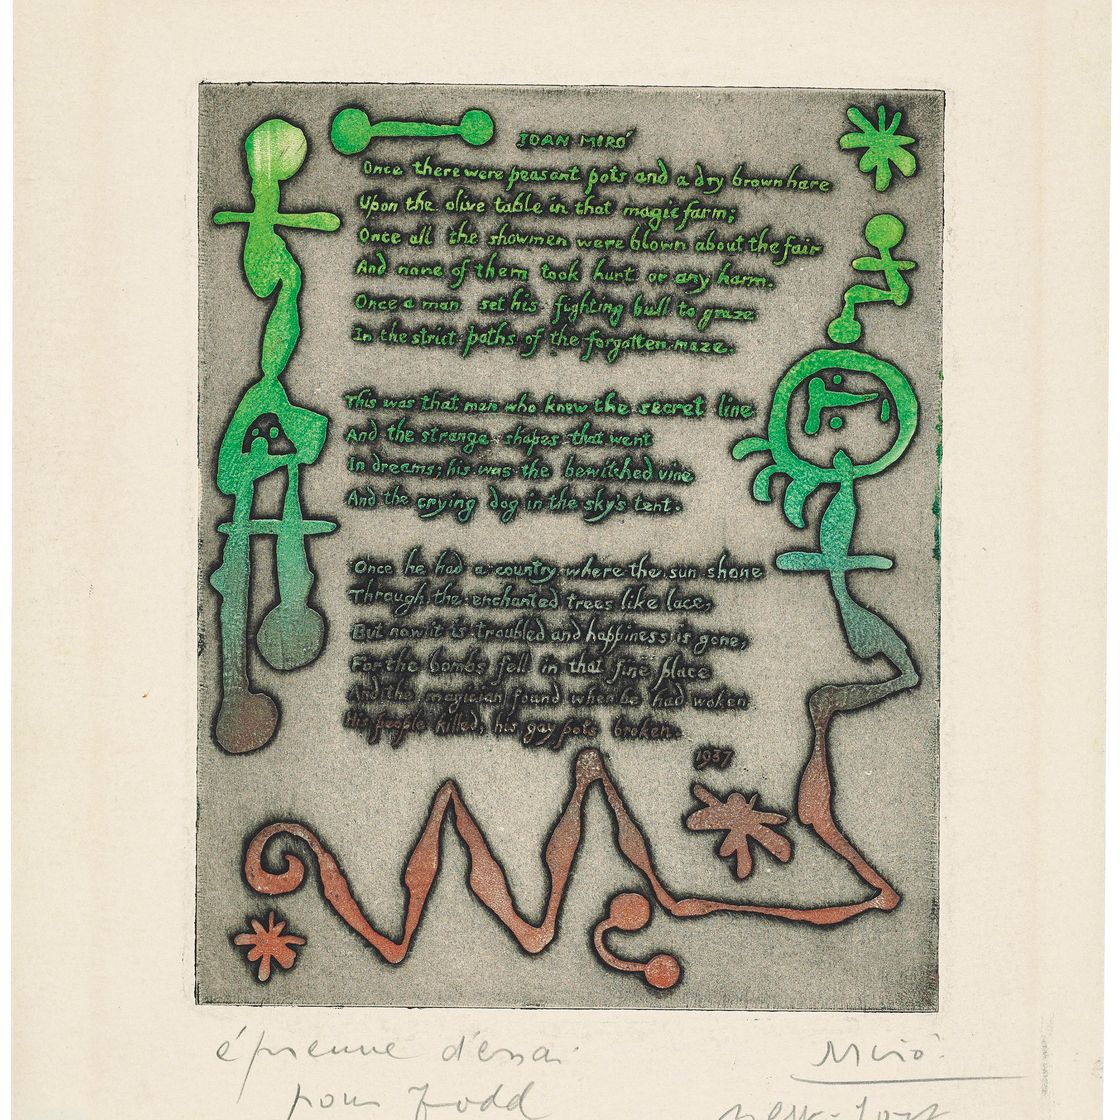 JOAN MIRÓ
Once there were peasant pots and a dry brown hare
Upon the olive table in that magic farm;
Once all the showmen were blown about the fair
And none of them took hurt or any harm.
Once a man set his fighting bull to graze
In the strict paths of the forgotten maze.
This was that man who knew the secret line
And the strange shapes that went
In dreams; his was the bewitched vine
And the crying dog in the sky's tent.
Once he had a country where the sun shone
Through the enchanted trees like lace,
But now it is troubled and happiness is gone,
For the bombs fell in that fine place
And the magician found when he had woken
His people killed, his gay pots broken.
1937
épreuve d'essai
Miró.
pour Rodd
New-York